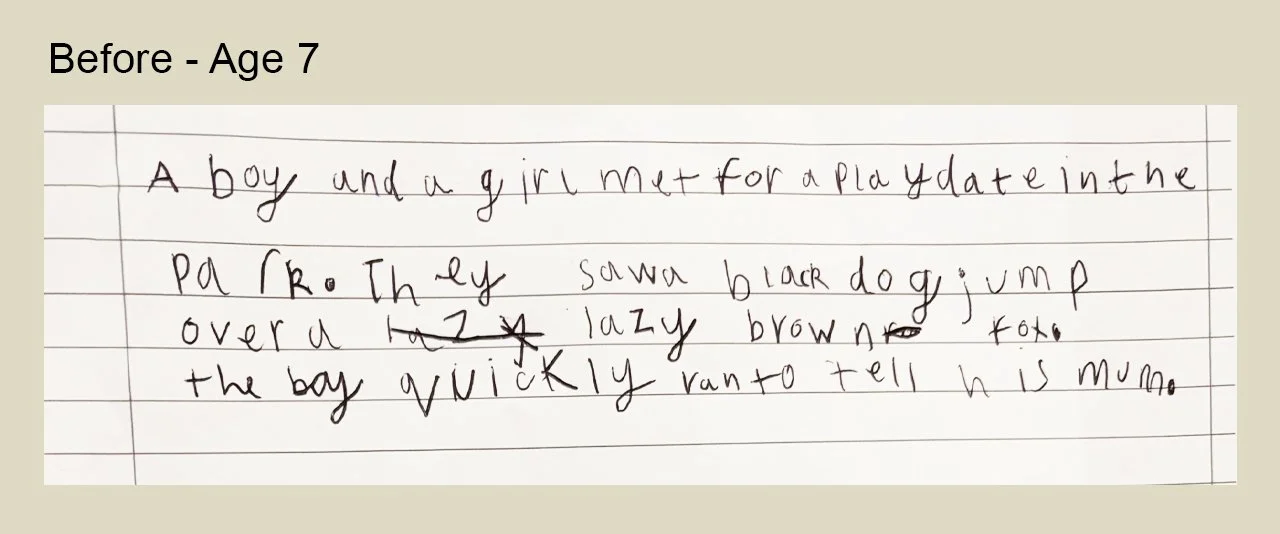 Before - Age 7
A boy and a girl met for a playdate in the
park. They saw a black dog jump
over a lazy lazy brown fox.
the boy quickly ran to tell his mum.